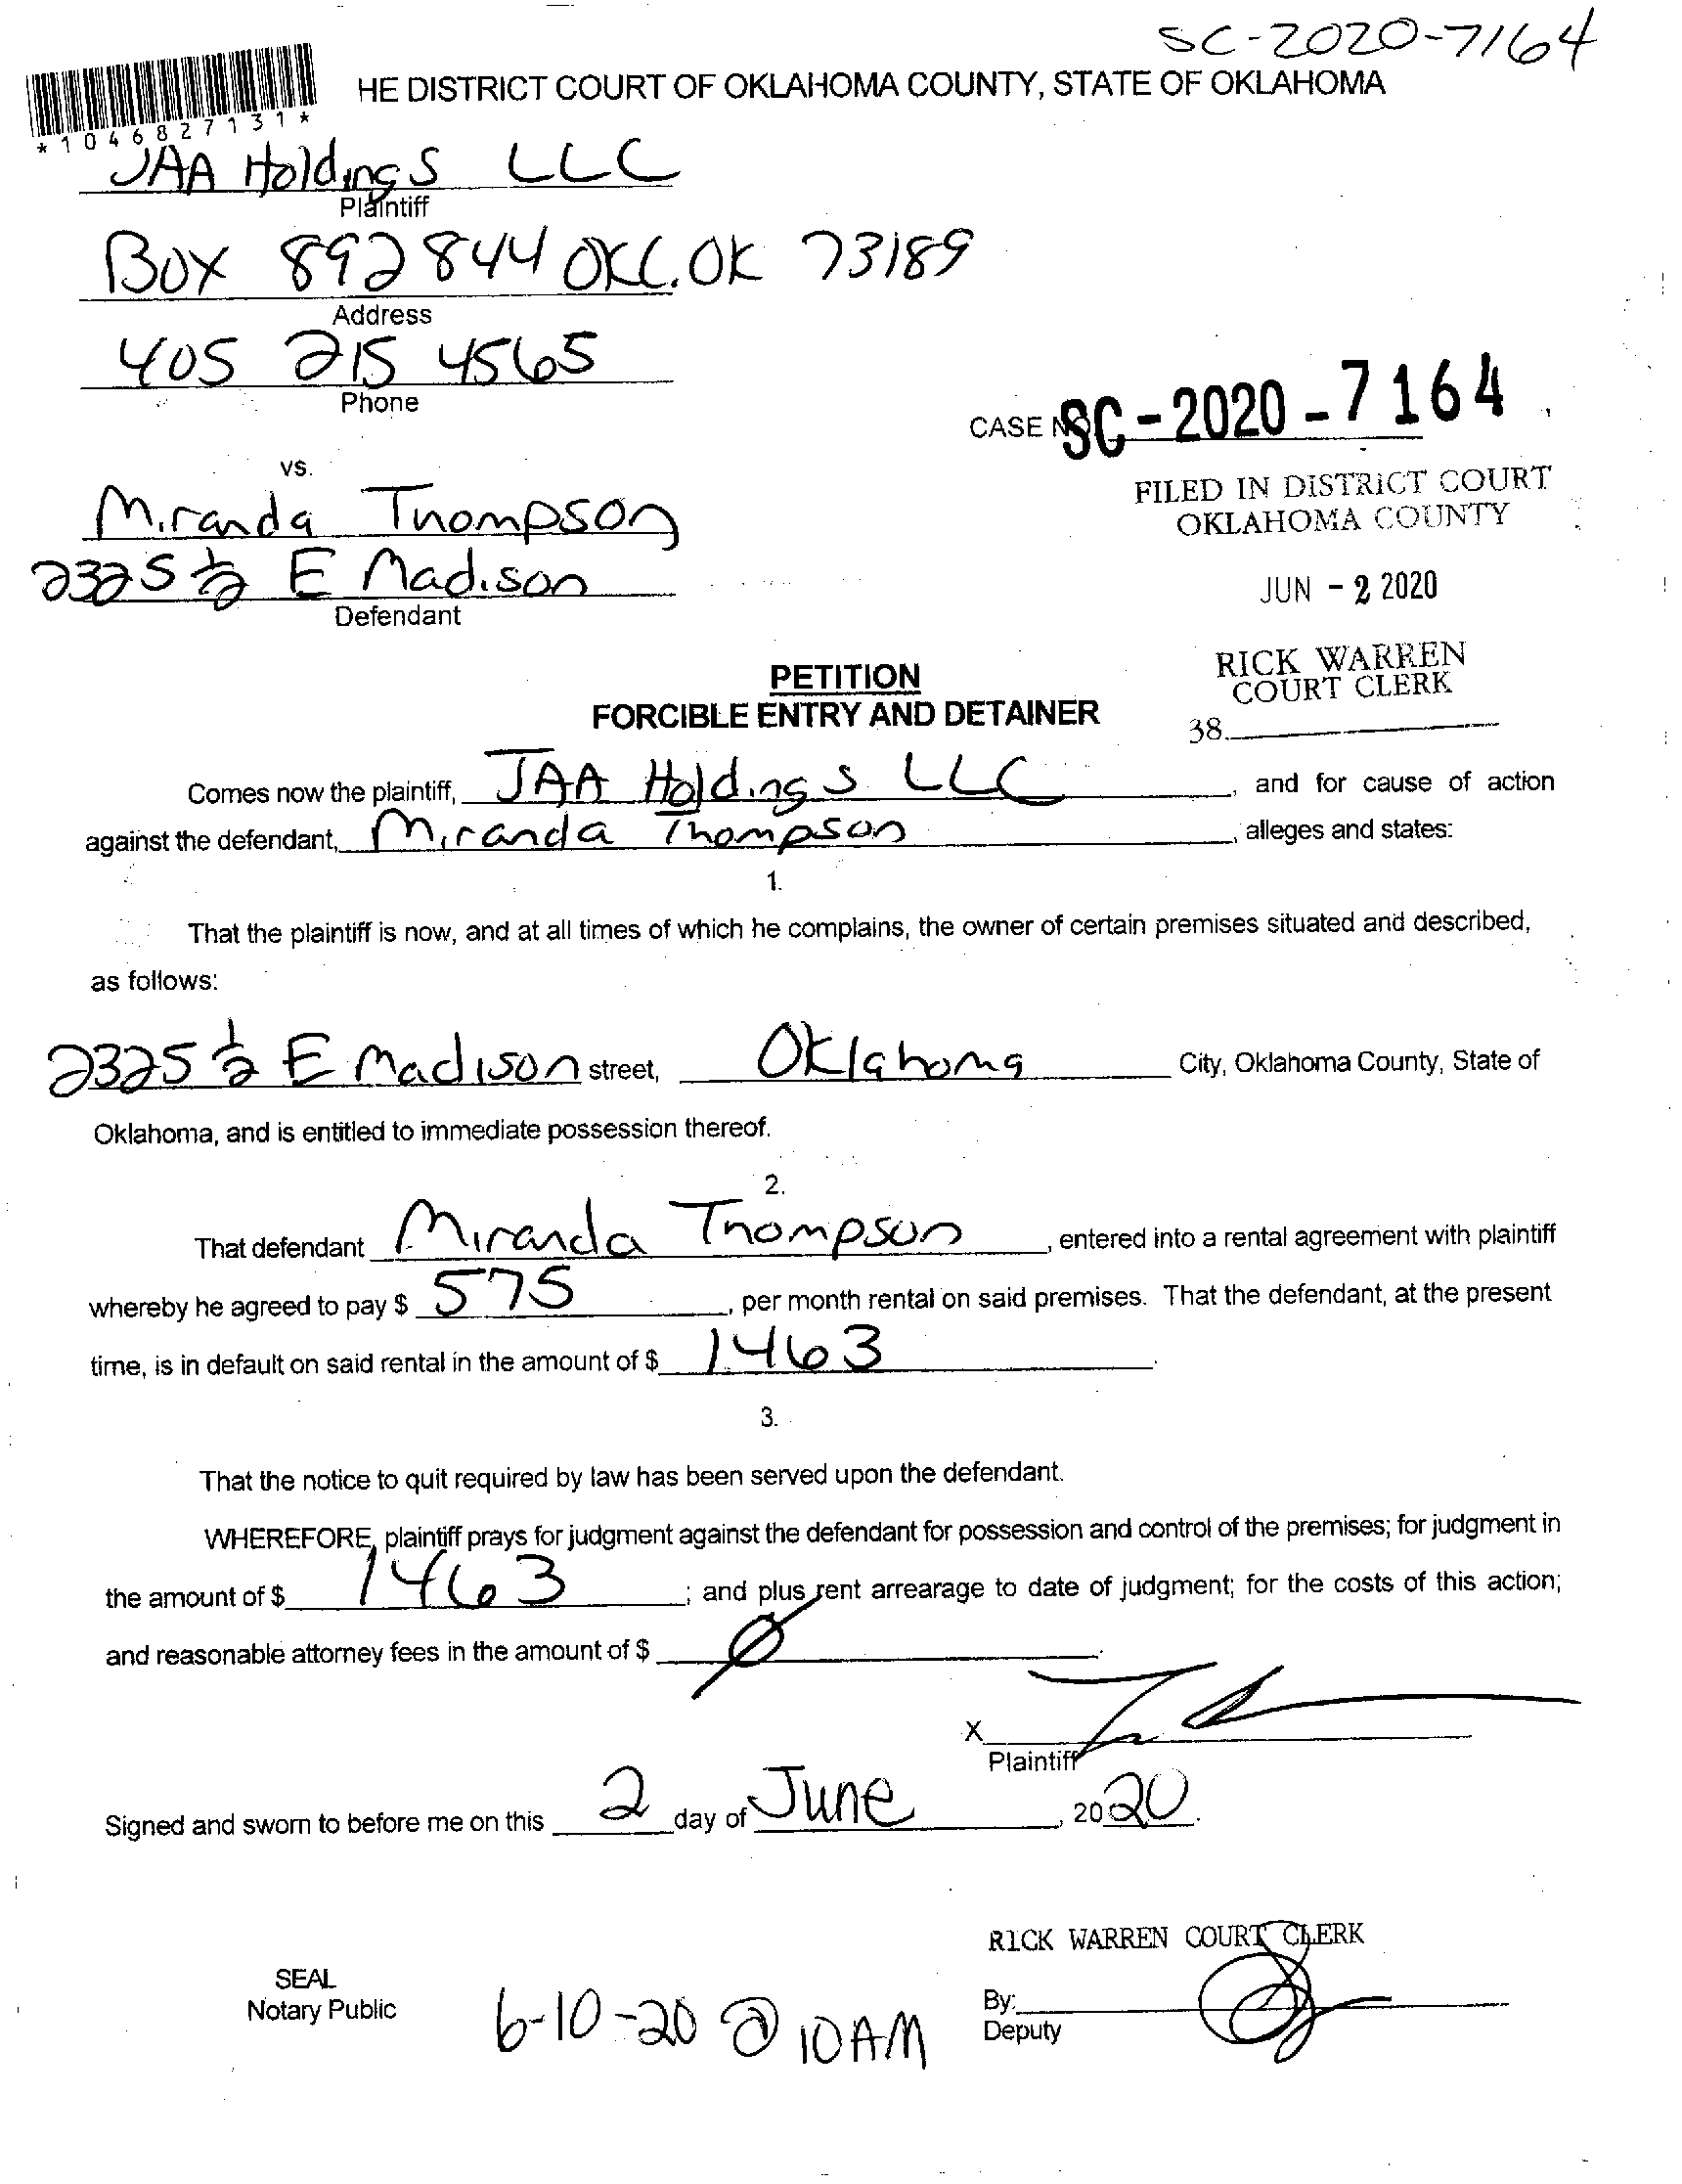 SC-2020-7164
HE DISTRICT COURT OF OKLAHOMA COUNTY, STATE OF OKLAHOMA
*1046827131*
JAA Holdings LLC
Plaintiff
Box 892844 OKC. OK 73189
Address
405 215 4565
Phone
CASE NO. SC-2020-7164
vs.
FILED IN DISTRICT COURT
OKLAHOMA COUNTY
Miranda Thompson
2325 1/2 E Madison
Defendant
JUN - 2 2020
RICK WARREN
COURT CLERK
38
PETITION
FORCIBLE ENTRY AND DETAINER
Comes now the plaintiff, JAA Holdings LLC, and for cause of action
against the defendant, Miranda Thompson, alleges and states:
1.
That the plaintiff is now, and at all times of which he complains, the owner of certain premises situated and described,
as follows:
2325 1/2 E Madison street, Oklahoma City, Oklahoma County, State of
Oklahoma, and is entitled to immediate possession thereof.
2.
That defendant Miranda Thompson, entered into a rental agreement with plaintiff
whereby he agreed to pay $ 575, per month rental on said premises. That the defendant, at the present
time, is in default on said rental in the amount of $ 1463.
3.
That the notice to quit required by law has been served upon the defendant.
WHEREFORE, plaintiff prays for judgment against the defendant for possession and control of the premises; for judgment in
the amount of $ 1463; and plus rent arrearage to date of judgment; for the costs of this action;
and reasonable attorney fees in the amount of $ Ø.
X
Plaintiff
Signed and sworn to before me on this 2 day of June, 2020.
RICK WARREN COURT CLERK
SEAL
Notary Public
6-10-20 @ 10AM
By:
Deputy